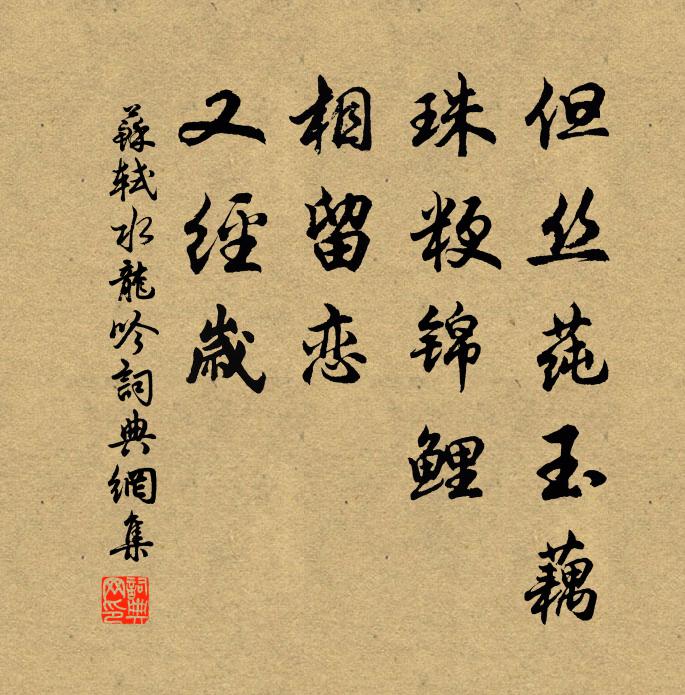 但丝莼玉藕
珠粳锦鲤
相留恋
又經歲
蘇軾水龍吟詞典網集
詞典网印